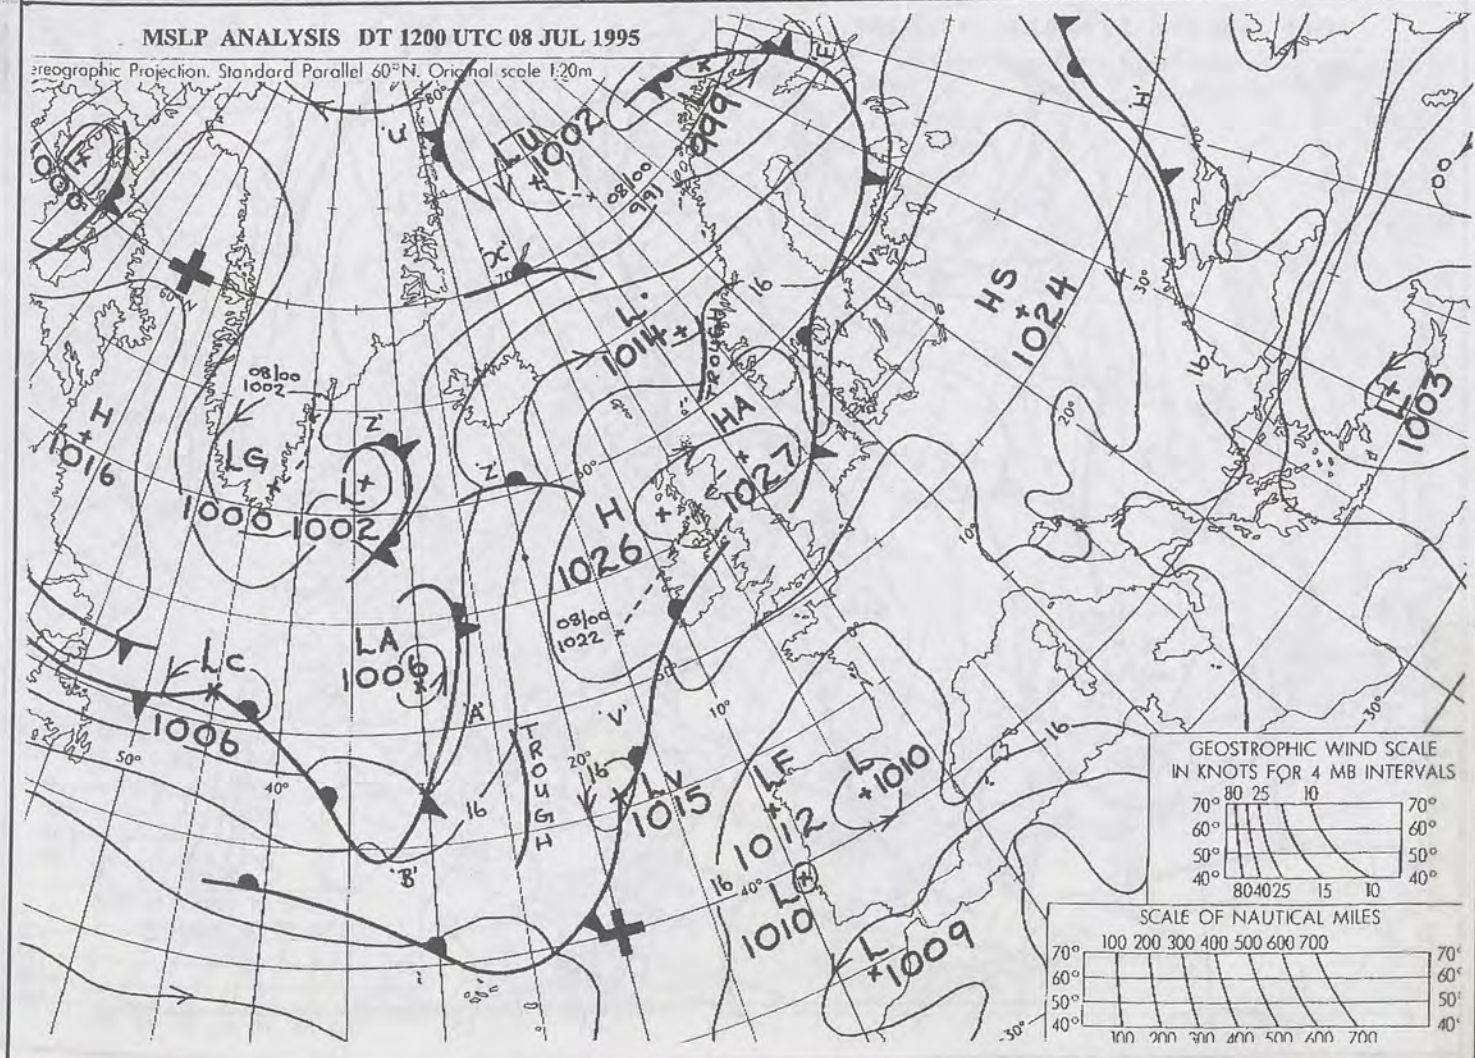 MSLP ANALYSIS DT 1200 UTC 08 JUL 1995
ereographic Projection. Standard Parallel 60°N. Original scale 1:20m
80°
'U'
LU
1002
08/00
L
999
'H'
'X'
60°N
HS
1024
30°
16
V
16
L
1014
TROUGH
L
1003
08/00
1002
H
1016
LG
1000
'Z'
L
1002
Z
HA
1027
H
1026
20°
10°
08/00
1022
0°
50°
LA
1006
LC
1006
'A'
'V'
TROUGH
10°
20°
16
LV
1015
LF
1012
L
1010
16
30°
50°
40°
16
'B'
16
40°
L
1010
L
1009
30°
GEOSTROPHIC WIND SCALE
IN KNOTS FOR 4 MB INTERVALS
80 25 10
70° 70°
60° 60°
50° 50°
40° 40°
80 40 25 15 10
SCALE OF NAUTICAL MILES
100 200 300 400 500 600 700
70° 70°
60° 60°
50° 50°
40° 40°
100 200 300 400 500 600 700